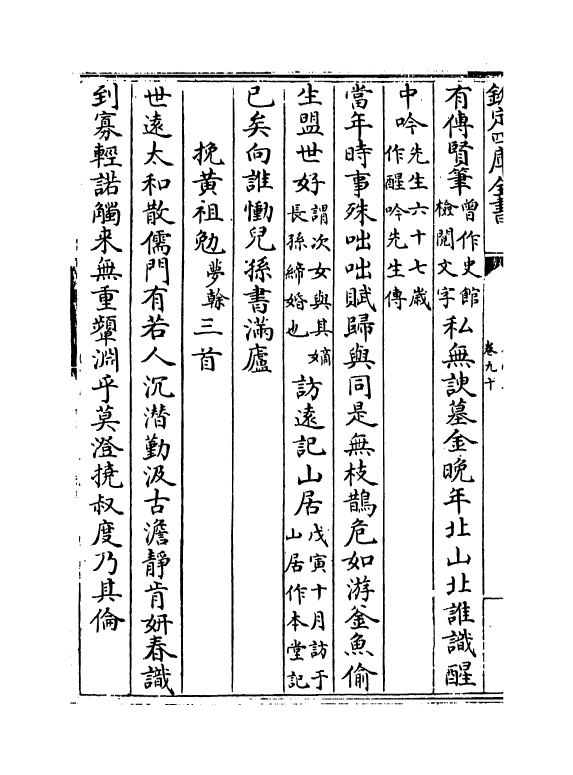 欽定四庫全書
卷九十
有傳賢筆曾作史館檢閱文字私無諛墓金晚年北山北誰識醒
中吟先生六十七歲作醒吟先生傳
當年時事殊咄咄賦歸與同是無枝鵲危如游釜魚偷
生盟世好謂次女與其嫡長孫締婚也訪遠記山居戊寅十月訪于山居作本堂記
已矣向誰慟兒孫書滿廬
挽黃祖勉夢榦三首
世遠太和散儒門有若人沉潛勤汲古澹靜肯妍春識
到寡輕諾觸来無重顰淵乎莫澄撓叔度乃其倫